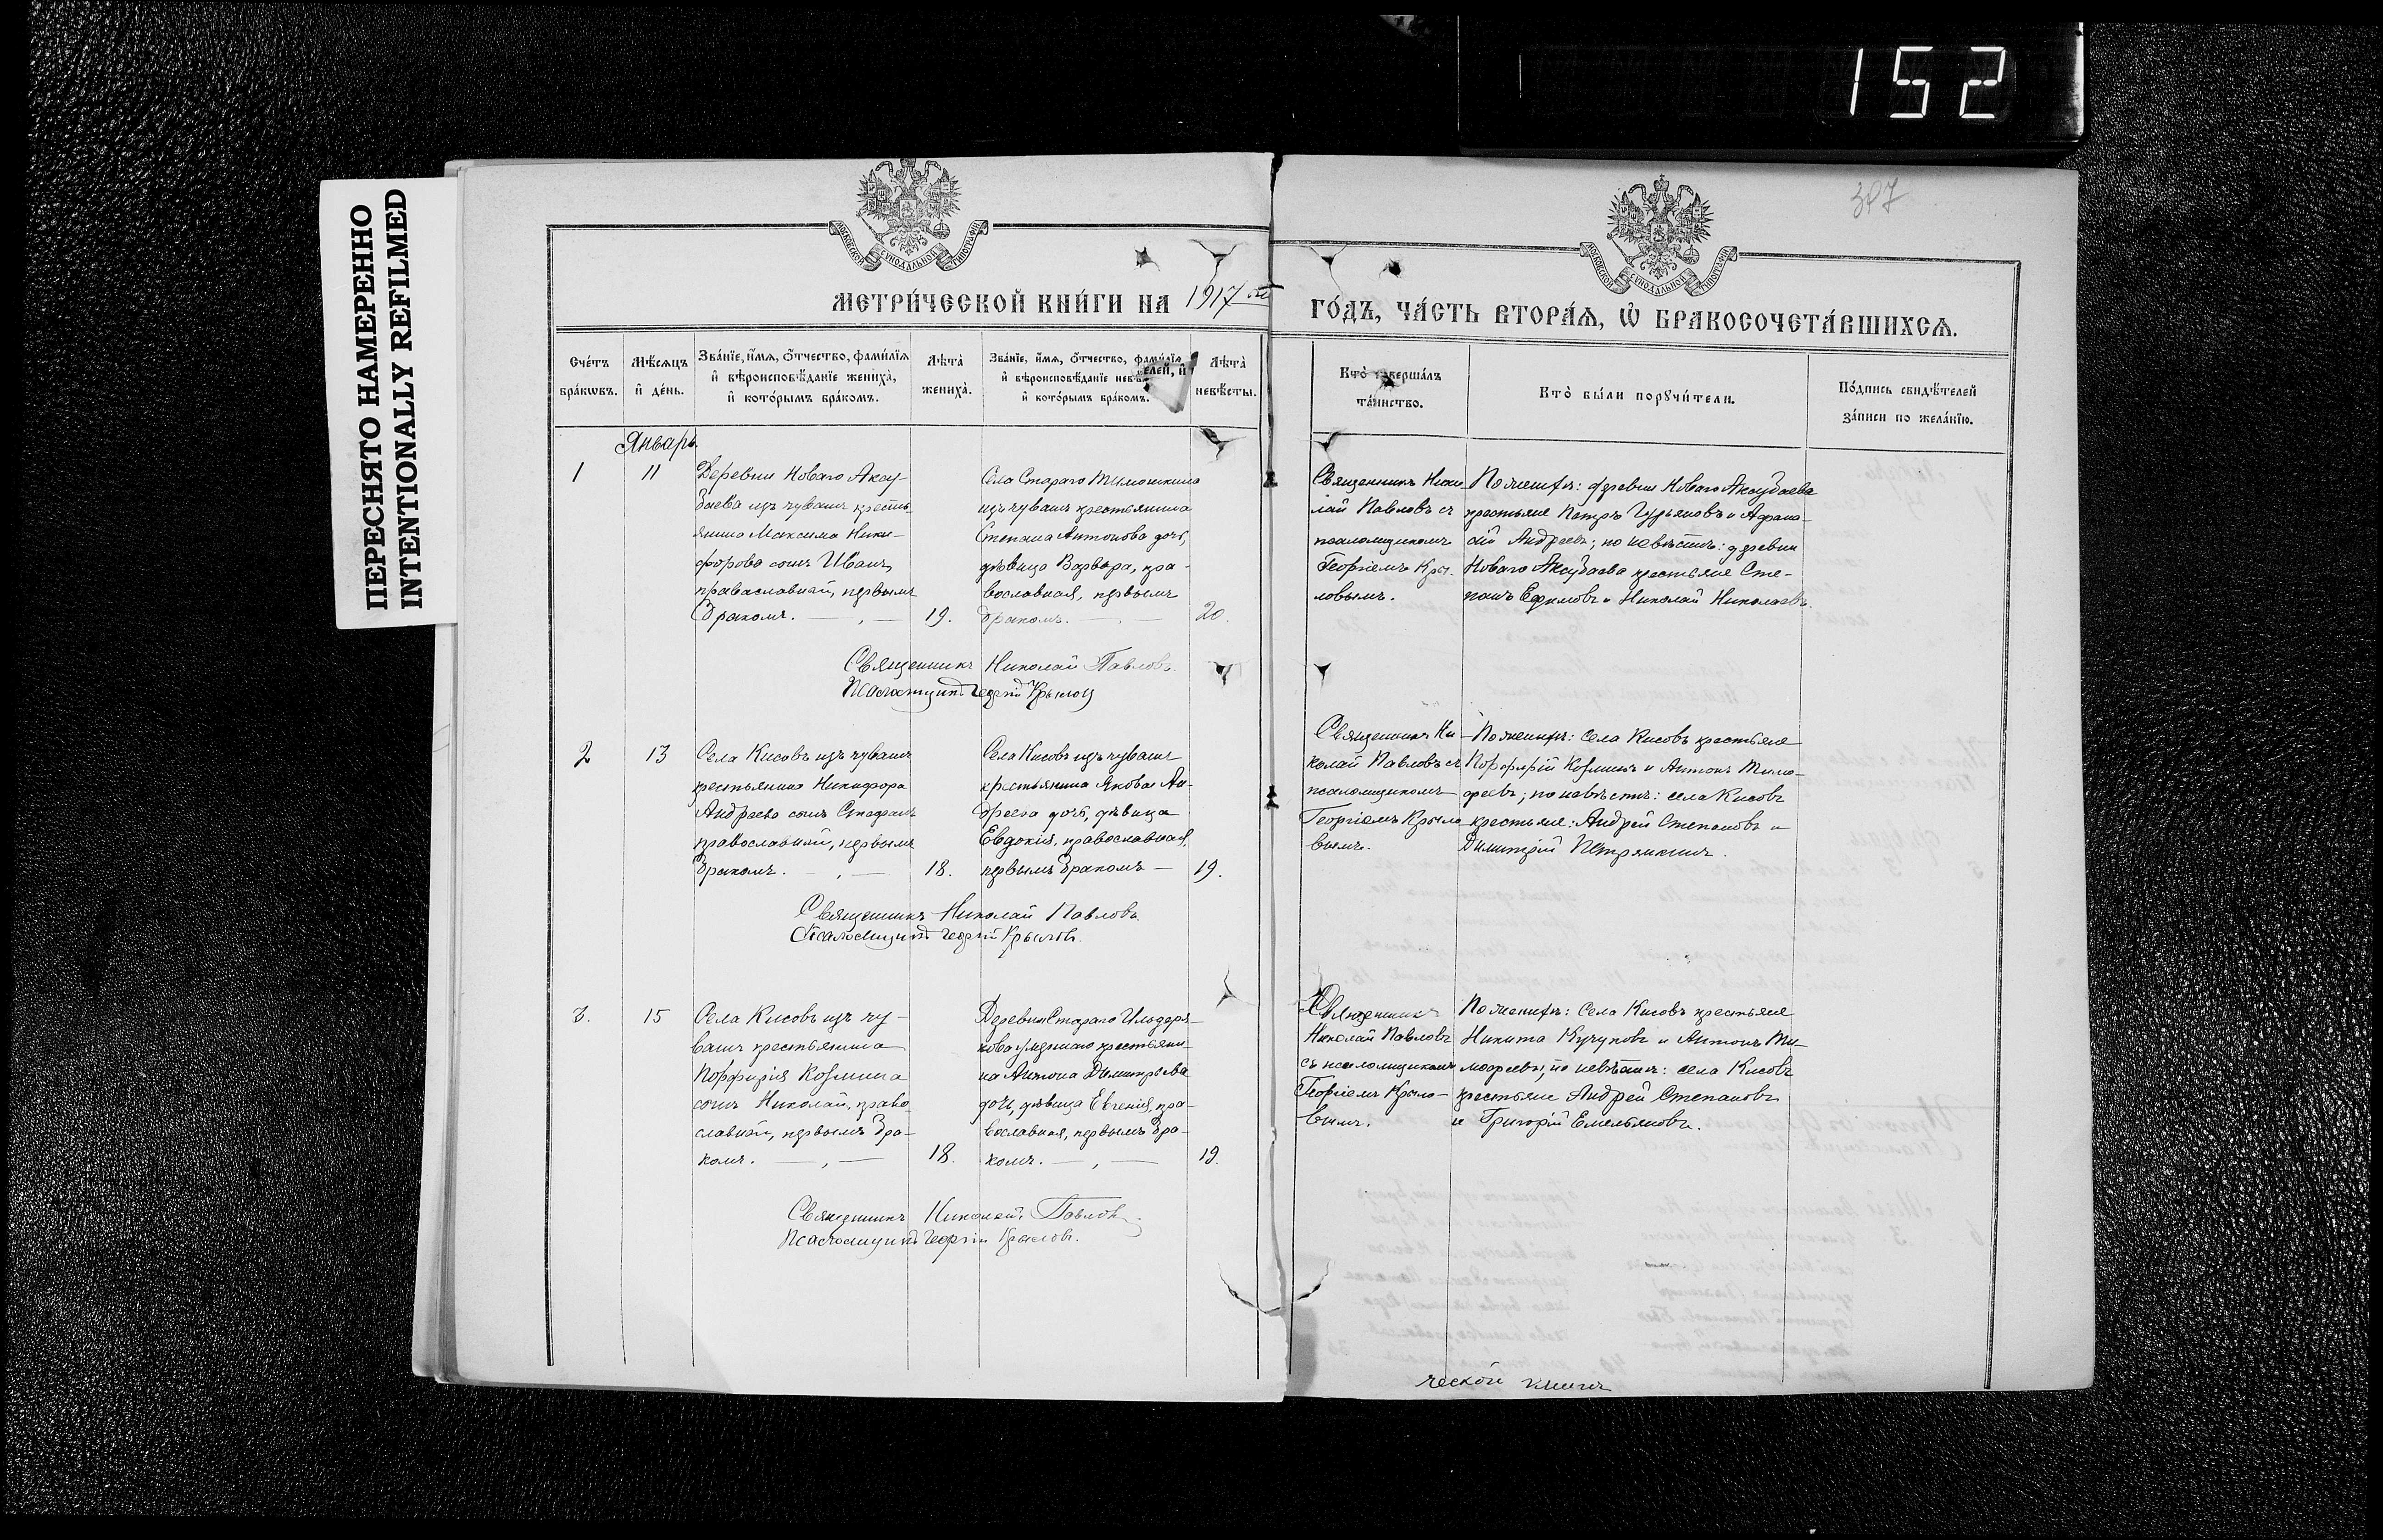 152
ПЕРЕСНЯТО НАМЕРЕННО
INTENTIONALLY REFILMED
307
МОСКОВСКОЙ СѴНОДАЛЬНОЙ ТИПОГРАФІИ
МОСКОВСКОЙ СѴНОДАЛЬНОЙ ТИПОГРАФІИ
МЕТРИ́ЧЕСКОЙ КНИ́ГИ НА 1917 ый
ГО́ДЪ, ЧА́СТЬ ВТОРА́Я, Ѡ҆ БРАКОСОЧЕТА́ВШИХСЯ.
Сче́тъ бра́кѡвъ.
Мѣ́сяцъ и҆ де́нь.
Зва́нїе, и҆́мя, ѻ҆́тчество, фами́лїя и҆ вѣроисповѣ́данїе жениха̀, и҆ кото́рымъ бра́комъ.
Лѣ́та̀ жениха̀.
Зва́нїе, и҆́мя, ѻ҆́тчество, фами́лїя и҆ вѣроисповѣ́данїе невѣ и҆ кото́рымъ бра́комъ.
елей, и҆
Лѣ́та̀ невѣ́сты.
Кто̀ соверша́лъ та́инство.
Кто̀ бы́ли порꙋчи́тели.
По́дпись свидѣ́телей за́писи по жела́нїю.
Январь.
1
11
Деревни Новаго Аксу-
баева изъ чувашъ кресть-
янина Максима Ники-
форова сынъ Иванъ,
православный, первымъ
бракомъ.
19.
Села Стараго Тимошкина
изъ чувашъ крестьянина
Степана Антонова дочь,
дѣвица Варвара, пра-
вославная, первымъ
бракомъ.
20.
Священникъ Нико-
лай Павловъ съ
псаломщикомъ
Георгіемъ Кры-
ловымъ.
По женихѣ: деревни Новаго Аксубаева
крестьяне Петръ Гурьяновъ и Афана-
сій Андреевъ; по невѣстѣ: деревни
Новаго Аксубаева крестьяне Сте-
панъ Ефимовъ и Николай Николаевъ.
Священникъ Николай Павловъ.
Псаломщикъ Георгій Крылов
2
13
Села Кисовъ изъ чувашъ
крестьянина Никифора
Андреева сынъ Стефанъ
православный, первымъ
бракомъ.
18.
Села Кисовъ изъ чувашъ
крестьянина Якова Ан-
дреева дочь, дѣвица
Евдокія, православная,
первымъ бракомъ
19.
Священникъ Ни-
колай Павловъ съ
псаломщикомъ
Георгіемъ Крыло-
вымъ.
По женихѣ: села Кисовъ крестьяне
Порфирій Козминъ и Антонъ Тимо-
феевъ; по невѣстѣ: села Кисовъ
крестьяне: Андрей Степановъ и
Димитрій Петрянкинъ.
Священникъ Николай Павловъ
Псаломщикъ Георгій Крыловъ.
3.
15
Села Кисовъ изъ чу-
вашъ крестьянина
Порфирія Козмина
сынъ Николай, право-
славный, первымъ бра-
комъ.
18.
Деревни Стараго Ильдеря-
кова умершаго крестьяни-
на Антона Димитріева
дочь, дѣвица Евгенія, пра-
вославная, первымъ бра-
комъ.
19.
Священникъ
Николай Павловъ
съ псаломщикомъ
Георгіемъ Крыло-
вымъ.
По женихѣ: села Кисовъ крестьяне
Никита Кучуковъ и Антонъ Ти-
мофеевъ; по невѣстѣ: села Кисовъ
крестьяне Андрей Степановъ
и Григорій Емельяновъ.
Священникъ Николай Павловъ.
Псаломщикъ Георгій Крыловъ.
ческой книги